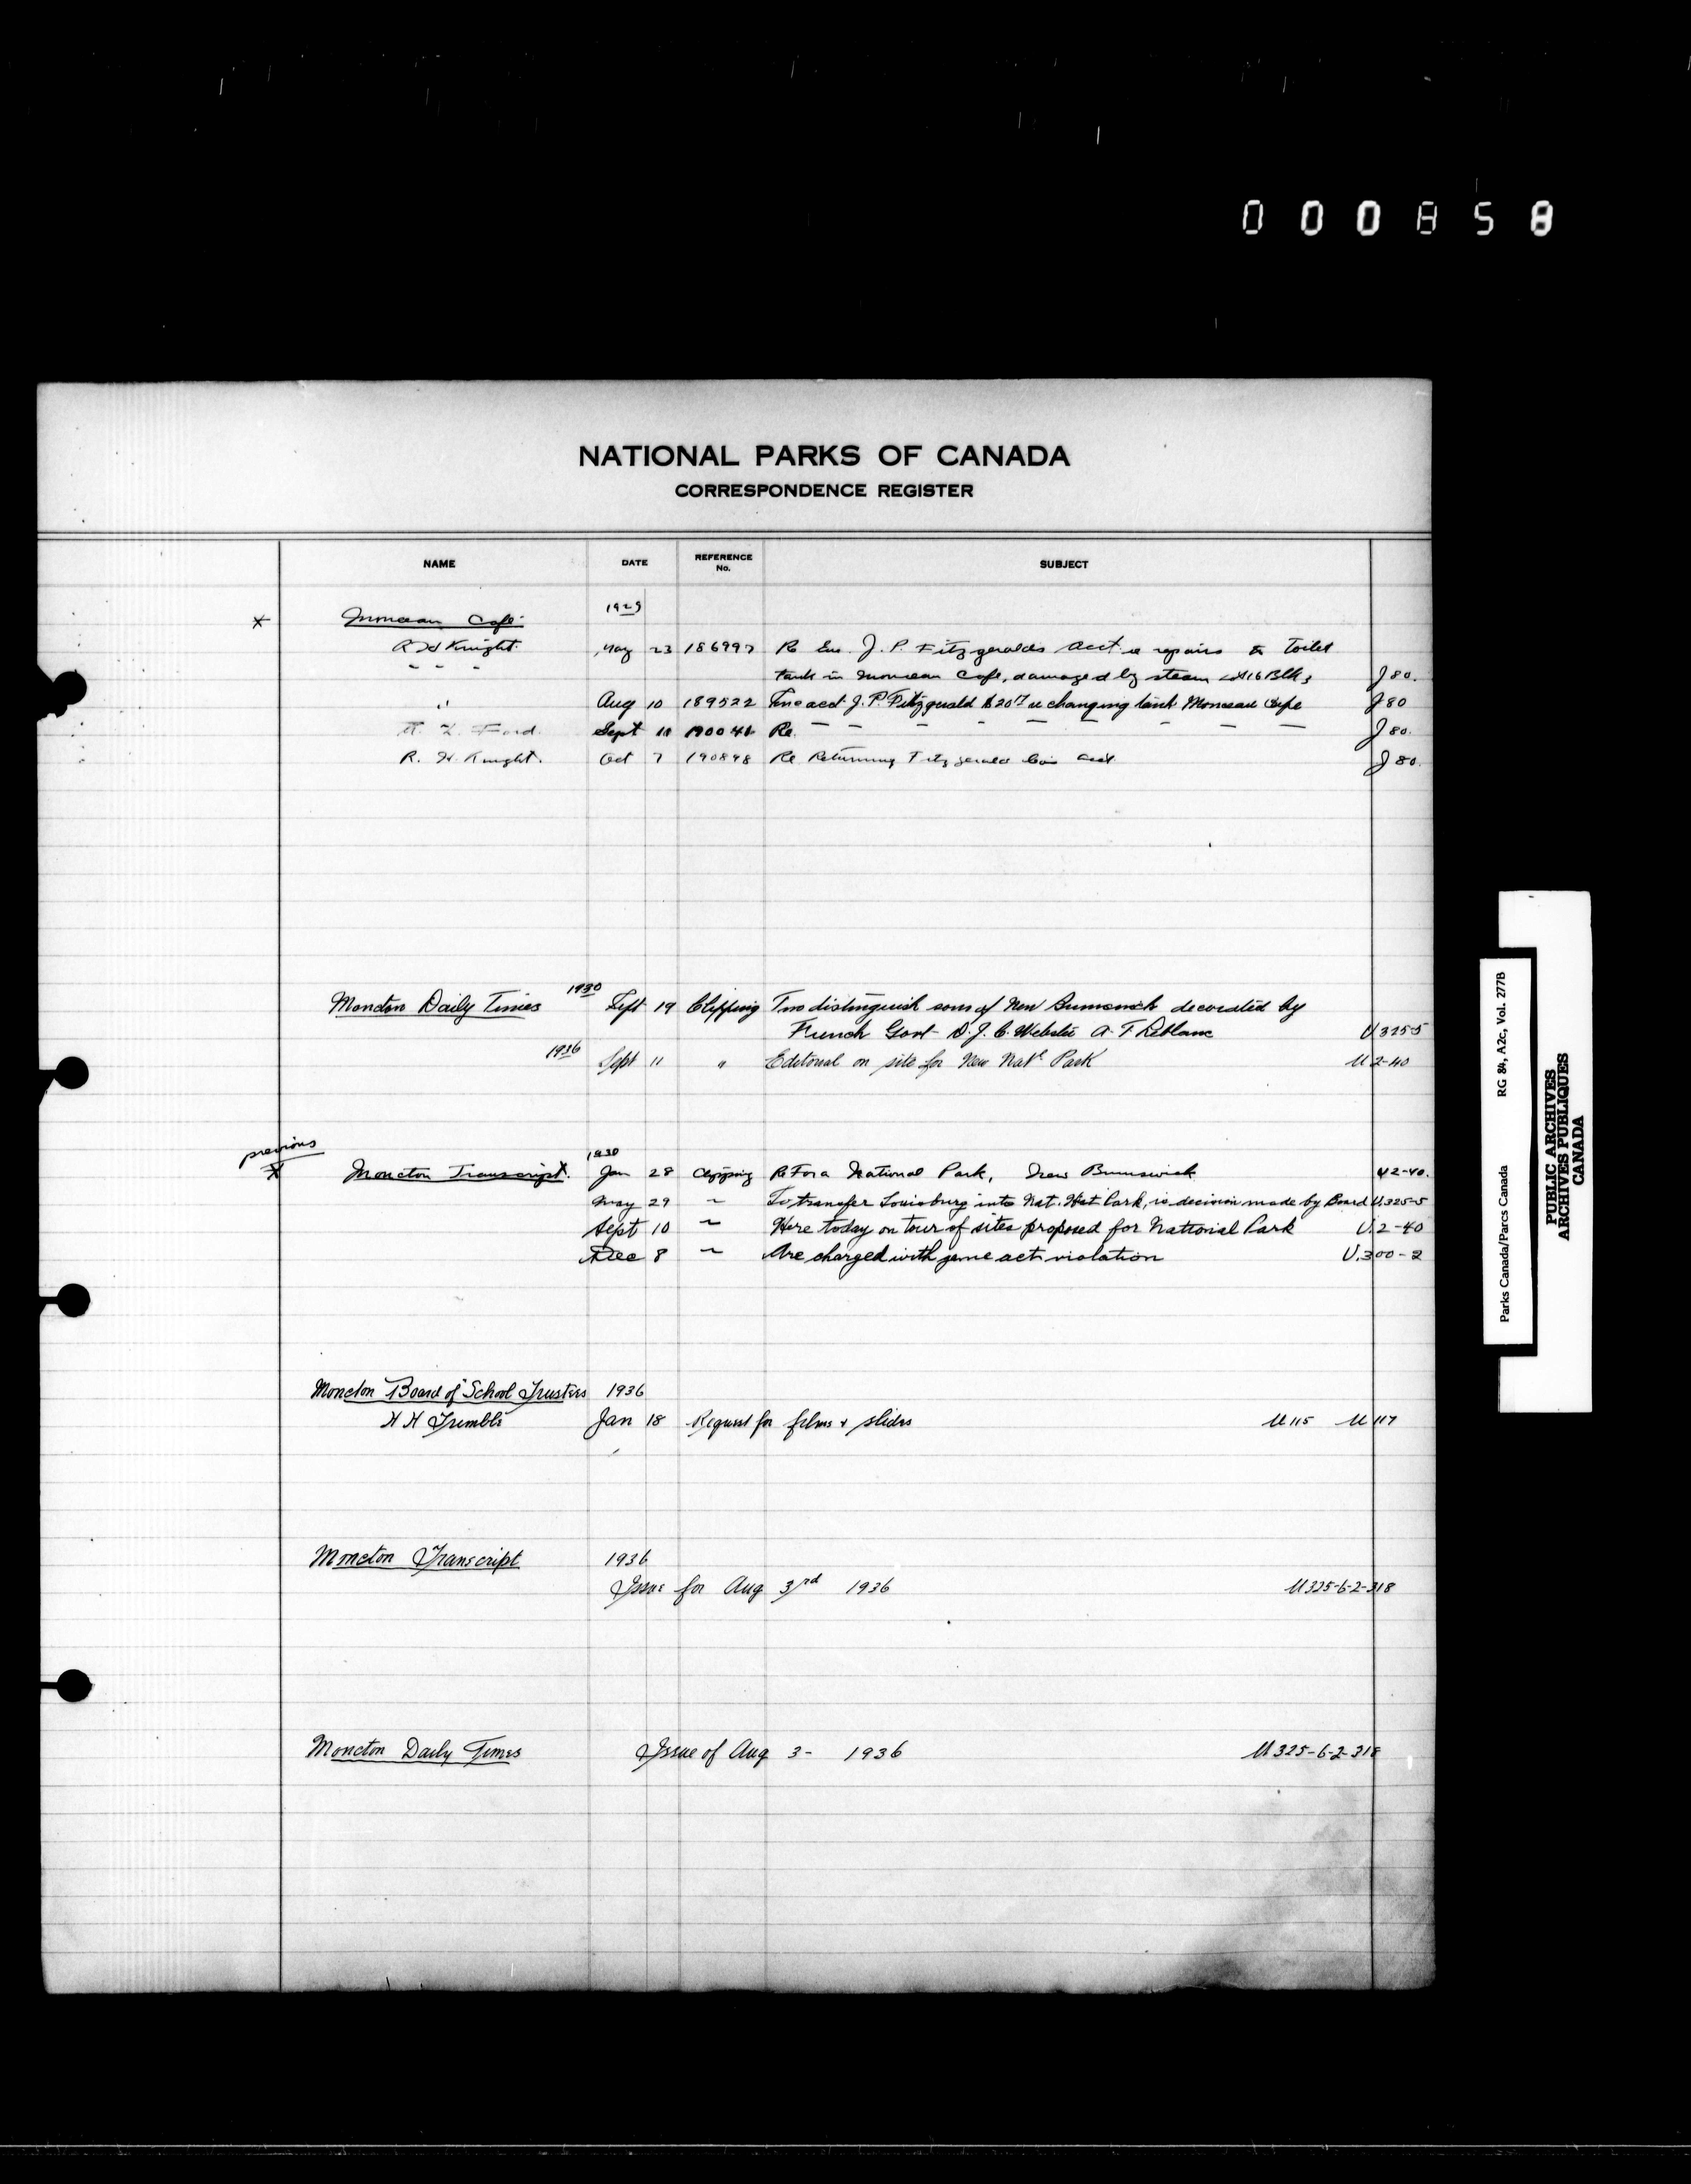 000858
NATIONAL PARKS OF CANADA
CORRESPONDENCE REGISTER
NAME DATE REFERENCE No. SUBJECT
1929
Café
R H Knight. May 23 186997 Re J. P. Fitzgeralds acct re repairs to Toilet
" " " tank in Cafe, damaged by steam J 80.
" Aug 10 189522 acct J. P. Fitzgerald re changing tank Monsean Cafe J 80
Ford. Sept Re — — — — — — — — J 80.
R. H. Knight. Oct 7 190898 Re Returning Fitzgerald acct J 80.
Moncton Daily Times 1930 Sept 19 Clipping Two distinguish sons of New Brunswick decorated by
French Govt - D. J. C. Webster A. T. Leblanc U325-5
1936 Sept 11 " Editorial on site for New Natl Park U 2-40
previous
X Moncton Transcript. 1930 Jan 28 Clipping Re For a National Park, New Brunswick U2-40.
May 29 " To transfer Louisburg into Nat. Hist Park, is decision made by Board U.325-5
Sept 10 " Here today on tour of sites proposed for National Park U.2-40
Dec 8 " Are charged with game act violation U.300-2
Moncton Board of School Trustees 1936
H H Trimble Jan 18 Request for films + slides U 115 U 117
Moncton Transcript 1936
Issue for Aug 3rd 1936 U325-6-2-318
Moncton Daily Times Issue of Aug 3- 1936 U 325-6-2-318
Parks Canada/Parcs Canada RG 84, A2c, Vol. 2778
PUBLIC ARCHIVES
ARCHIVES PUBLIQUES
CANADA